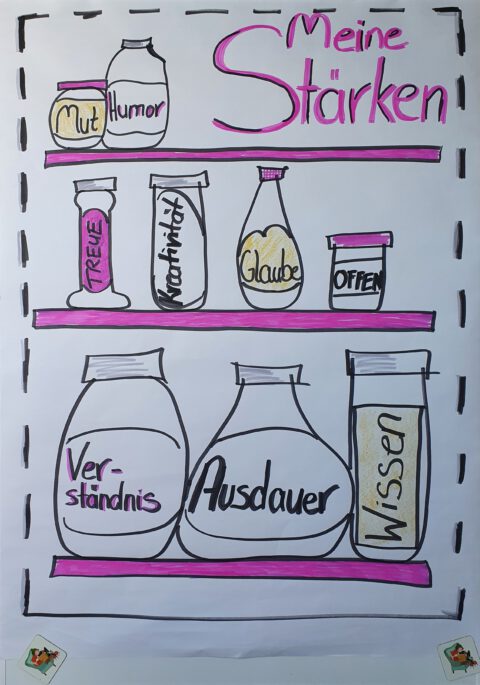 Meine
Stärken
Mut
Humor
TREUE
Kreativität
Glaube
OFFEN
Ver-
ständnis
Ausdauer
Wissen